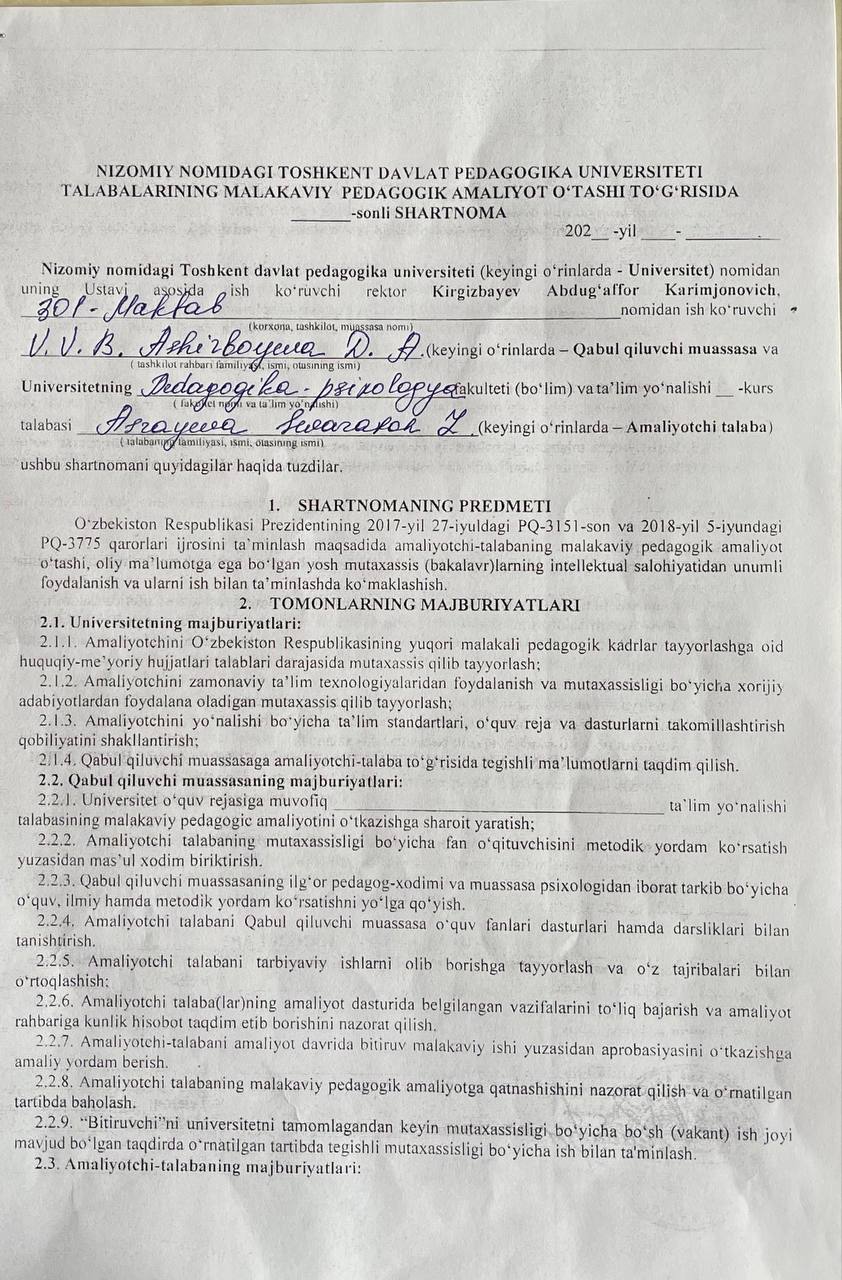 NIZOMIY NOMIDAGI TOSHKENT DAVLAT PEDAGOGIKA UNIVERSITETI
TALABALARINING MALAKAVIY PEDAGOGIK AMALIYOT O‘TASHI TO‘G‘RISIDA
_______-sonli SHARTNOMA
202__ -yil ____- __________
Nizomiy nomidagi Toshkent davlat pedagogika universiteti (keyingi o‘rinlarda - Universitet) nomidan
uning Ustavi asosida ish ko‘ruvchi rektor Kirgizbayev Abdug‘affor Karimjonovich,
301 - Maktab nomidan ish ko‘ruvchi
(korxona, tashkilot, muassasa nomi)
V. V. B. Ashirboyeva D. A. (keyingi o‘rinlarda – Qabul qiluvchi muassasa va
( tashkilot rahbari familiyasi, ismi, otasining ismi)
Universitetning Pedagogika - psixologiya fakulteti (bo‘lim) va ta’lim yo‘nalishi __ -kurs
( fakultet nomi va ta’lim yo‘nalishi)
talabasi Asrayewa Z (keyingi o‘rinlarda – Amaliyotchi talaba)
( talabaning familiyasi, ismi, otasining ismi)
ushbu shartnomani quyidagilar haqida tuzdilar.
1. SHARTNOMANING PREDMETI
O‘zbekiston Respublikasi Prezidentining 2017-yil 27-iyuldagi PQ-3151-son va 2018-yil 5-iyundagi
PQ-3775 qarorlari ijrosini ta’minlash maqsadida amaliyotchi-talabaning malakaviy pedagogik amaliyot
o‘tashi, oliy ma’lumotga ega bo‘lgan yosh mutaxassis (bakalavr)larning intellektual salohiyatidan unumli
foydalanish va ularni ish bilan ta’minlashda ko‘maklashish.
2. TOMONLARNING MAJBURIYATLARI
2.1. Universitetning majburiyatlari:
2.1.1. Amaliyotchini O‘zbekiston Respublikasining yuqori malakali pedagogik kadrlar tayyorlashga oid
huquqiy-me’yoriy hujjatlari talablari darajasida mutaxassis qilib tayyorlash;
2.1.2. Amaliyotchini zamonaviy ta’lim texnologiyalaridan foydalanish va mutaxassisligi bo‘yicha xorijiy
adabiyotlardan foydalana oladigan mutaxassis qilib tayyorlash;
2.1.3. Amaliyotchini yo‘nalishi bo‘yicha ta’lim standartlari, o‘quv reja va dasturlarni takomillashtirish
qobiliyatini shakllantirish;
2.1.4. Qabul qiluvchi muassasaga amaliyotchi-talaba to‘g‘risida tegishli ma’lumotlarni taqdim qilish.
2.2. Qabul qiluvchi muassasaning majburiyatlari:
2.2.1. Universitet o‘quv rejasiga muvofiq ______________________________ ta’lim yo‘nalishi
talabasining malakaviy pedagogic amaliyotini o‘tkazishga sharoit yaratish;
2.2.2. Amaliyotchi talabaning mutaxassisligi bo‘yicha fan o‘qituvchisini metodik yordam ko‘rsatish
yuzasidan mas’ul xodim biriktirish.
2.2.3. Qabul qiluvchi muassasaning ilg‘or pedagog-xodimi va muassasa psixologidan iborat tarkib bo‘yicha
o‘quv, ilmiy hamda metodik yordam ko‘rsatishni yo‘lga qo‘yish.
2.2.4. Amaliyotchi talabani Qabul qiluvchi muassasa o‘quv fanlari dasturlari hamda darsliklari bilan
tanishtirish.
2.2.5. Amaliyotchi talabani tarbiyaviy ishlarni olib borishga tayyorlash va o‘z tajribalari bilan
o‘rtoqlashish;
2.2.6. Amaliyotchi talaba(lar)ning amaliyot dasturida belgilangan vazifalarini to‘liq bajarish va amaliyot
rahbariga kunlik hisobot taqdim etib borishini nazorat qilish.
2.2.7. Amaliyotchi-talabani amaliyot davrida bitiruv malakaviy ishi yuzasidan aprobasiyasini o‘tkazishga
amaliy yordam berish.
2.2.8. Amaliyotchi talabaning malakaviy pedagogik amaliyotga qatnashishini nazorat qilish va o‘rnatilgan
tartibda baholash.
2.2.9. “Bitiruvchi”ni universitetni tamomlagandan keyin mutaxassisligi bo‘yicha bo‘sh (vakant) ish joyi
mavjud bo‘lgan taqdirda o‘rnatilgan tartibda tegishli mutaxassisligi bo‘yicha ish bilan ta'minlash.
2.3. Amaliyotchi-talabaning majburiyatlari: